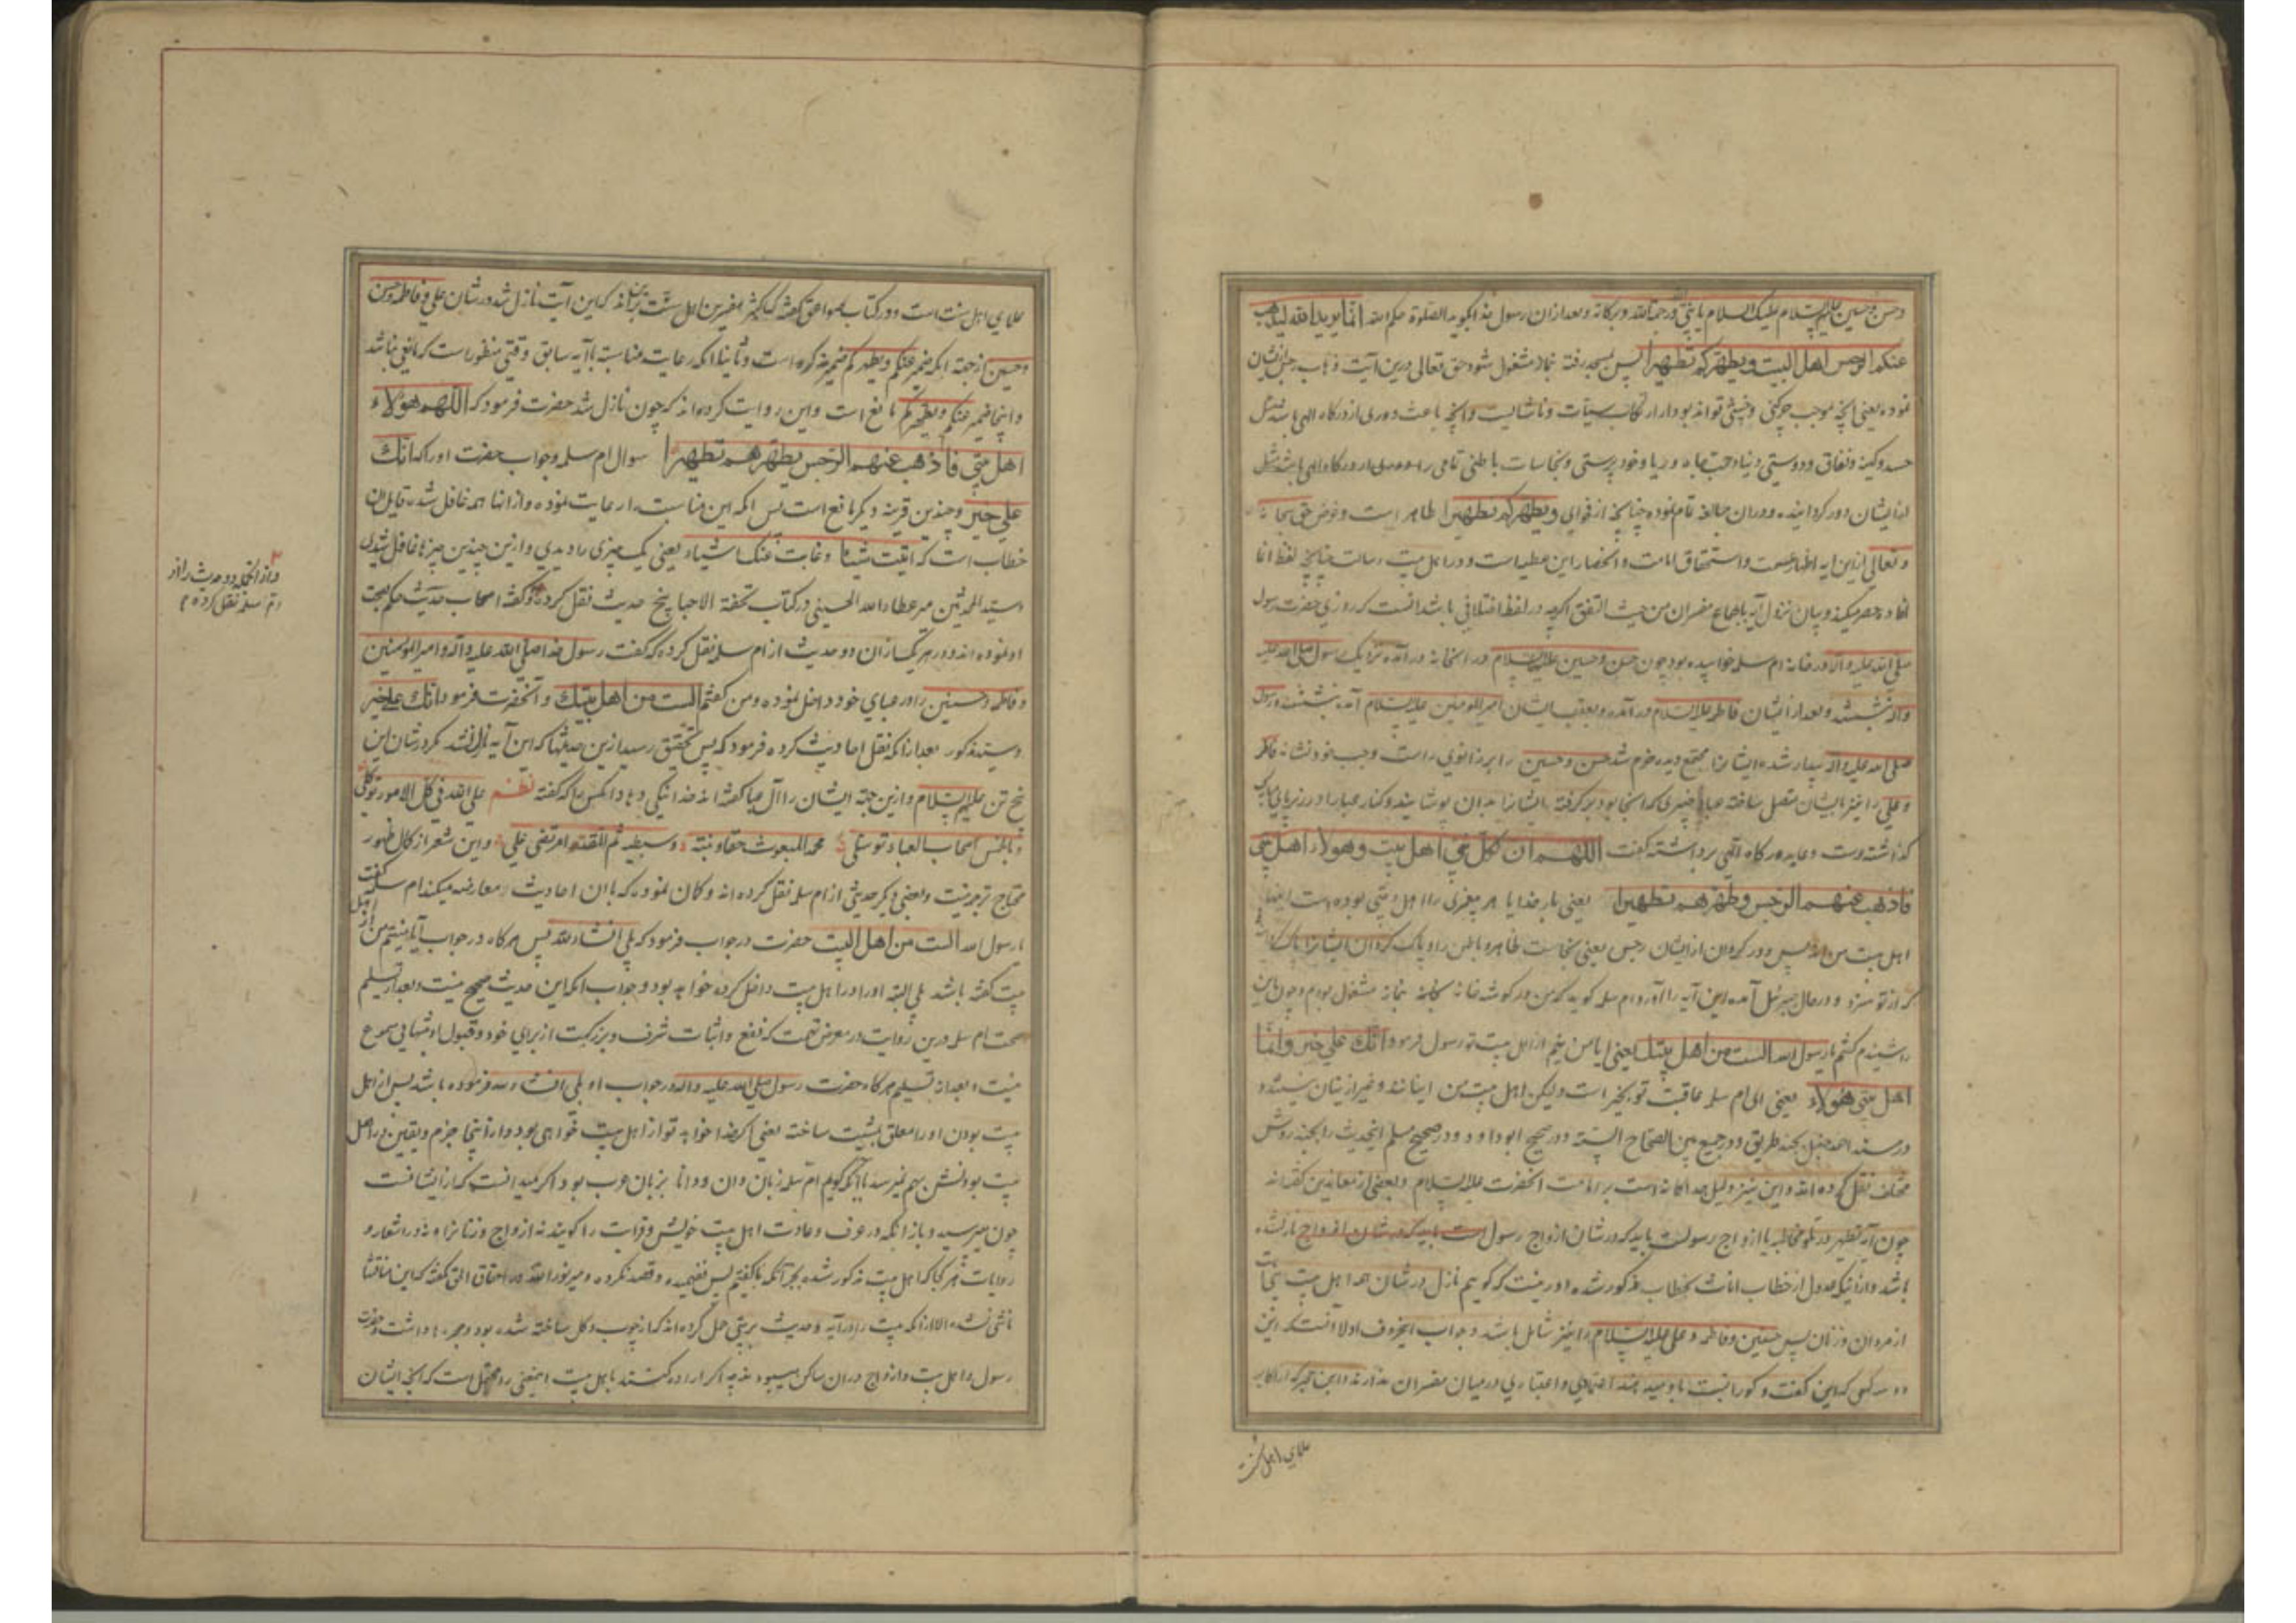 وحسن وحسین علیهم السلام علیک السلام یا بنی ورحمة الله وبرکاته وبعد ازان رسول خدا بگوید الصلوة رحمکم الله انما یرید الله لیذهب
عنکم الرجس اهل البیت ویطهرکم تطهیرا پس بمسجد رفته بنماز مشغول شود حق تعالی درین آیت ذهاب رجس ازیشان
نموده یعنی آنچه موجب چرکنی وخبیثی تواند بود از ارتکاب سیئات وناشایست وآنچه باعث دوری از درگاه الهی باشد مثل
حسد وکینه ونفاق ودوستی دنیا وحب جاه وریا وخودپرستی ونجاسات باطنی تمامی را
از ایشان دور گردانیده ودران مبالغه تمام نموده چنانچه از فوای ویطهرکم تطهیرا ظاهر است وغرض حق سبحانه
وتعالی ازین آیه اظهار عصمت واستحقاق امامت وانحصار این عطیه است در اهل بیت رسالت چنانچه لفظ انما
افاده حصر میکند وبیان نزول آیه باجماع مفسران من حیث التفق اگرچه در لفظ اختلافی باشد آنست که روزی حضرت رسول
صلی الله علیه وآله در خانه ام سلمه خوابیده بود چون حسن وحسین علیهما السلام در آنخانه در آمده نزدیک رسول صلی الله علیه
وآله نشستند وبعد از ایشان فاطمه علیها السلام در آمده وبعقب ایشان امیر المومنین علیه السلام آمده بنشستند رسول
صلی الله علیه وآله بیدار شده ایشانرا مجتمع دیده خرم شد حسن وحسین را بر زانوی راست وچپ خود نشانه فاطمه
وعلی را نیز بایشان متصل ساخته عبای خیبری که آنجا بود برگرفته ایشانرا بدان پوشانید وکنار عبا را در زیر پای مبارک
گذاشته دست دعا بدرگاه الهی برداشته گفت اللهم ان لکل نبی اهل بیت وهولاء اهل بیتی
فاذهب عنهم الرجس وطهرهم تطهیرا یعنی بار خدایا هر پیغمبری را اهل بیتی بوده است اینها
اهل بیت من اند پس دور گردان از ایشان رجس یعنی نجاست ظاهر وباطن را وپاک گردان ایشانرا پاک
که از تو سزد ودر حال جبرئیل آمده این آیه را آورد ام سلمه گوید که من در گوشه خانه بنماز مشغول بودم وچون این
را شنیدم گفتم یا رسول الله الست من اهل بیتک یعنی ایا من نیم از اهل بیت تو رسول فرمود انک علی خیر وانما
اهل بیتی هولاء یعنی ای ام سلمه عاقبت تو بخیر است ولیکن اهل بیت من اینانند وغیر ازینان نیستند و
در مسند احمد حنبل بچند طریق ودر جمع بین الصحاح السته ودر صحیح ابو داود ودر صحیح مسلم اینحدیث را بچند روش
مختلف نقل کرده اند واین نیز دلیل جداگانه است بر امامت آنحضرت علیه السلام وبعضی از معاندین گفته اند
چون آیه تطهیر در تلو مخاطبه با ازواج رسولست باید که در شان ازواج رسول ست باید که در شان ازواج نازلشده
باشد واز اینکه عدول از خطاب اناث بخطاب مذکور شده دور نیست که گوییم نازل در شان همه اهل بیت
از مردان وزنان پس حسنین وفاطمه وعلی علیه السلام را نیز شامل باشد وجواب اینحرف اولا آنست که این
کسی که این گفت وگو را نسبت باو میدهند اعتمادی واعتباری درمیان مفسران ندارند
علمای اهل سنت
علمای اهل سنت است ودر کتاب صواعق گفته که اکثر مفسرین اهل سنت برآنند که این آیت نازل شد در شان علی وفاطمه وحسن
وحسین از جهة آنکه ضمیر عنکم ویطهرکم ضمیر مذکر است وثانیا آنکه رعایت مناسبت باآیه سابق وقتی منظور است که مانعی نباشد
واینجا ضمیر عنکم ویطهرکم مانع است واین روایت کرده اند که چون نازل شد حضرت فرمود که اللهم هولاء
اهل بیتی فاذهب عنهم الرجس یطهرهم تطهیرا سوال ام سلمه وجواب حضرت اورا که انک
علی خیر وچندین قرینه دیگر مانع است پس آنکه این مناسبت را رعایت نموده واز انها همه غافل شده قایل
خطاب است که اثبت شیئا وغابت عنک اشیاء یعنی یک چیزی را دیدی وازین چندین چیزها غافل شدی
وسید المحدثین میر عطاء الله الحسینی در کتاب تحفة الاحبا پنج حدیث نقل کرده وگفته اصحاب حدیث حکم بصحت
او نموده اند ودر هر یکساز آن دو حدیث از ام سلمه نقل کرده که گفت رسول خدا صلی الله علیه وآله وامیر المومنین
وفاطمه وحسنین را در عبای خود داخل نموده ومن گفتم الست من اهل بیتک وآنحضرت فرمود انک علی خیر
وسید مذکور بعد ازانکه نقل احادیث کرده فرمود که پس بتحقیق رسید ازین حدیثها که این آیه نازل نشد مگر در شان این
پنج تن علیهم السلام وازین جهة ایشان را آل عبا گفته اند خدا نیکی دهاد آنکس را که گفته نظم علی الله فی کل الامور توکلی
وبالخمس اصحاب العباء توسلی محمد المبعوث حقا وبنته وسبطیه ثم المقتدا مرتضی علی واین شعر از کمال ظهور
محتاج ترجمه نیست وبعضی دیگر حدیثی از ام سلمه نقل کرده اند وگمان نموده که باان احادیث معارضه میکند ام سلمه گفت
یا رسول الله الست من اهل البیت حضرت در جواب فرمود که بلی انشاء الله پس هرگاه در جواب آیا نیستم من از اهل
بیت گفته باشد بلی البته اورا در اهل بیت داخل کرده خواهد بود وجواب آنکه این حدیث صحیح نیست وبعد از تسلیم
صحت ام سلمه درین روایت در معرض تهمت که نفع واثبات شرف وبزرگیست از برای خود وقبول او بتنهایی مسموع
نیست وبعد از تسلیم هرگاه حضرت رسول صلی الله علیه وآله در جواب او بلی انشاء الله فرموده باشد پس از اهل
بیت بودن اورا معلق بمشیت ساخته یعنی اگر خدا خواهد تو از اهل بیت خواهی بود واز اینجا جزم ویقین در اهل
بیت بودنش بهم نمیرسد باآنکه گویم ام سلمه زبان دان ودانا بزبان عرب بود اگر میدانست که از ایشانست
چون میپرسید وباز آنکه در عرف وعادت اهل بیت خویش وقرابت را گویند نه ازواج وزنانرا ودر اشعار و
روایات هر کجا که اهل بیت مذکور شده بجز آنکه ما گفتیم کس نفهمیده وقصد نکرده ومیر نور الله در احقاق الحق گفته که این مناقشا
ناشی نشده الا ازانکه بیت را در آیه وحدیث بر بیتی حمل کرده اند که از چوب وگل ساخته شده بود
رسول واهل بیت وازواج دران ساکن میبودند چه اگر اراده کنند باهل بیت اینمعنی را محتمل است که آنچه ایشان
وازآنجمله دو حدیث را از
ام سلمه نقل کرده